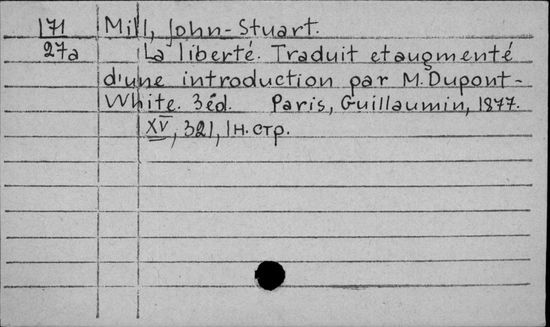 171 Mill, John-Stuart.
27a La liberté. Traduit et augmenté
d'une introduction par M. Dupont-
White. 3 éd. Paris, Guillaumin, 1877.
XV, 321, 1 н. стр.